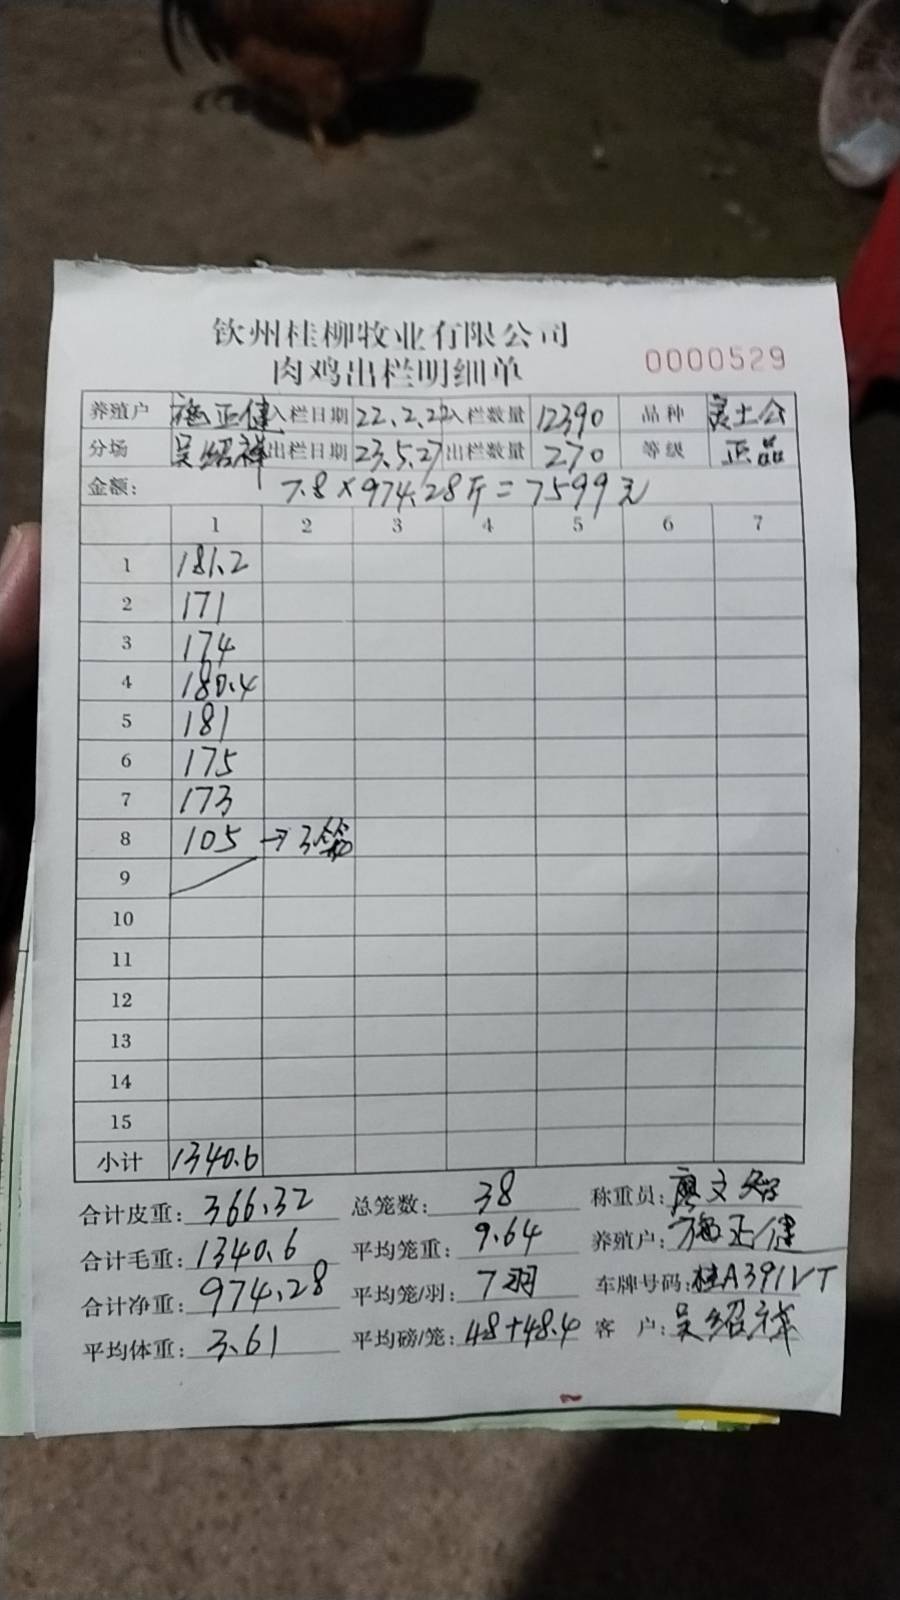 钦州桂柳牧业有限公司
肉鸡出栏明细单
0000529
养殖户 施正健 入栏日期 22.2.22 入栏数量 12390 品种 灵土公
分场 吴绍祥 出栏日期 23.5.27 出栏数量 270 等级 正品
金额: 7.8×974.28斤=7599元
1 2 3 4 5 6 7
1 181.2
2 171
3 174
4 180.4
5 181
6 175
7 173
8 105 →3笼
9
10
11
12
13
14
15
小计 1340.6
合计皮重: 366.32 总笼数: 38 称重员: 廖文
合计毛重: 1340.6 平均笼重: 9.64 养殖户: 施正健
合计净重: 974.28 平均笼/羽: 7羽 车牌号码: 桂A391VT
平均体重: 3.61 平均磅/笼: 48+48.4 客 户: 吴绍祥